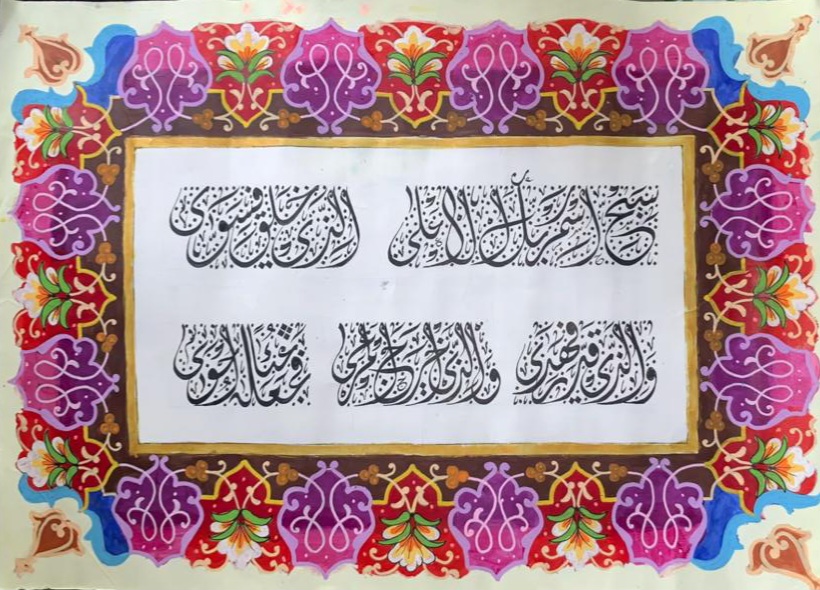 سبح اسم ربك الاعلى الذي خلق فسوى
والذي قدر فهدى والذي اخرج المرعى فجعله غثاء احوى